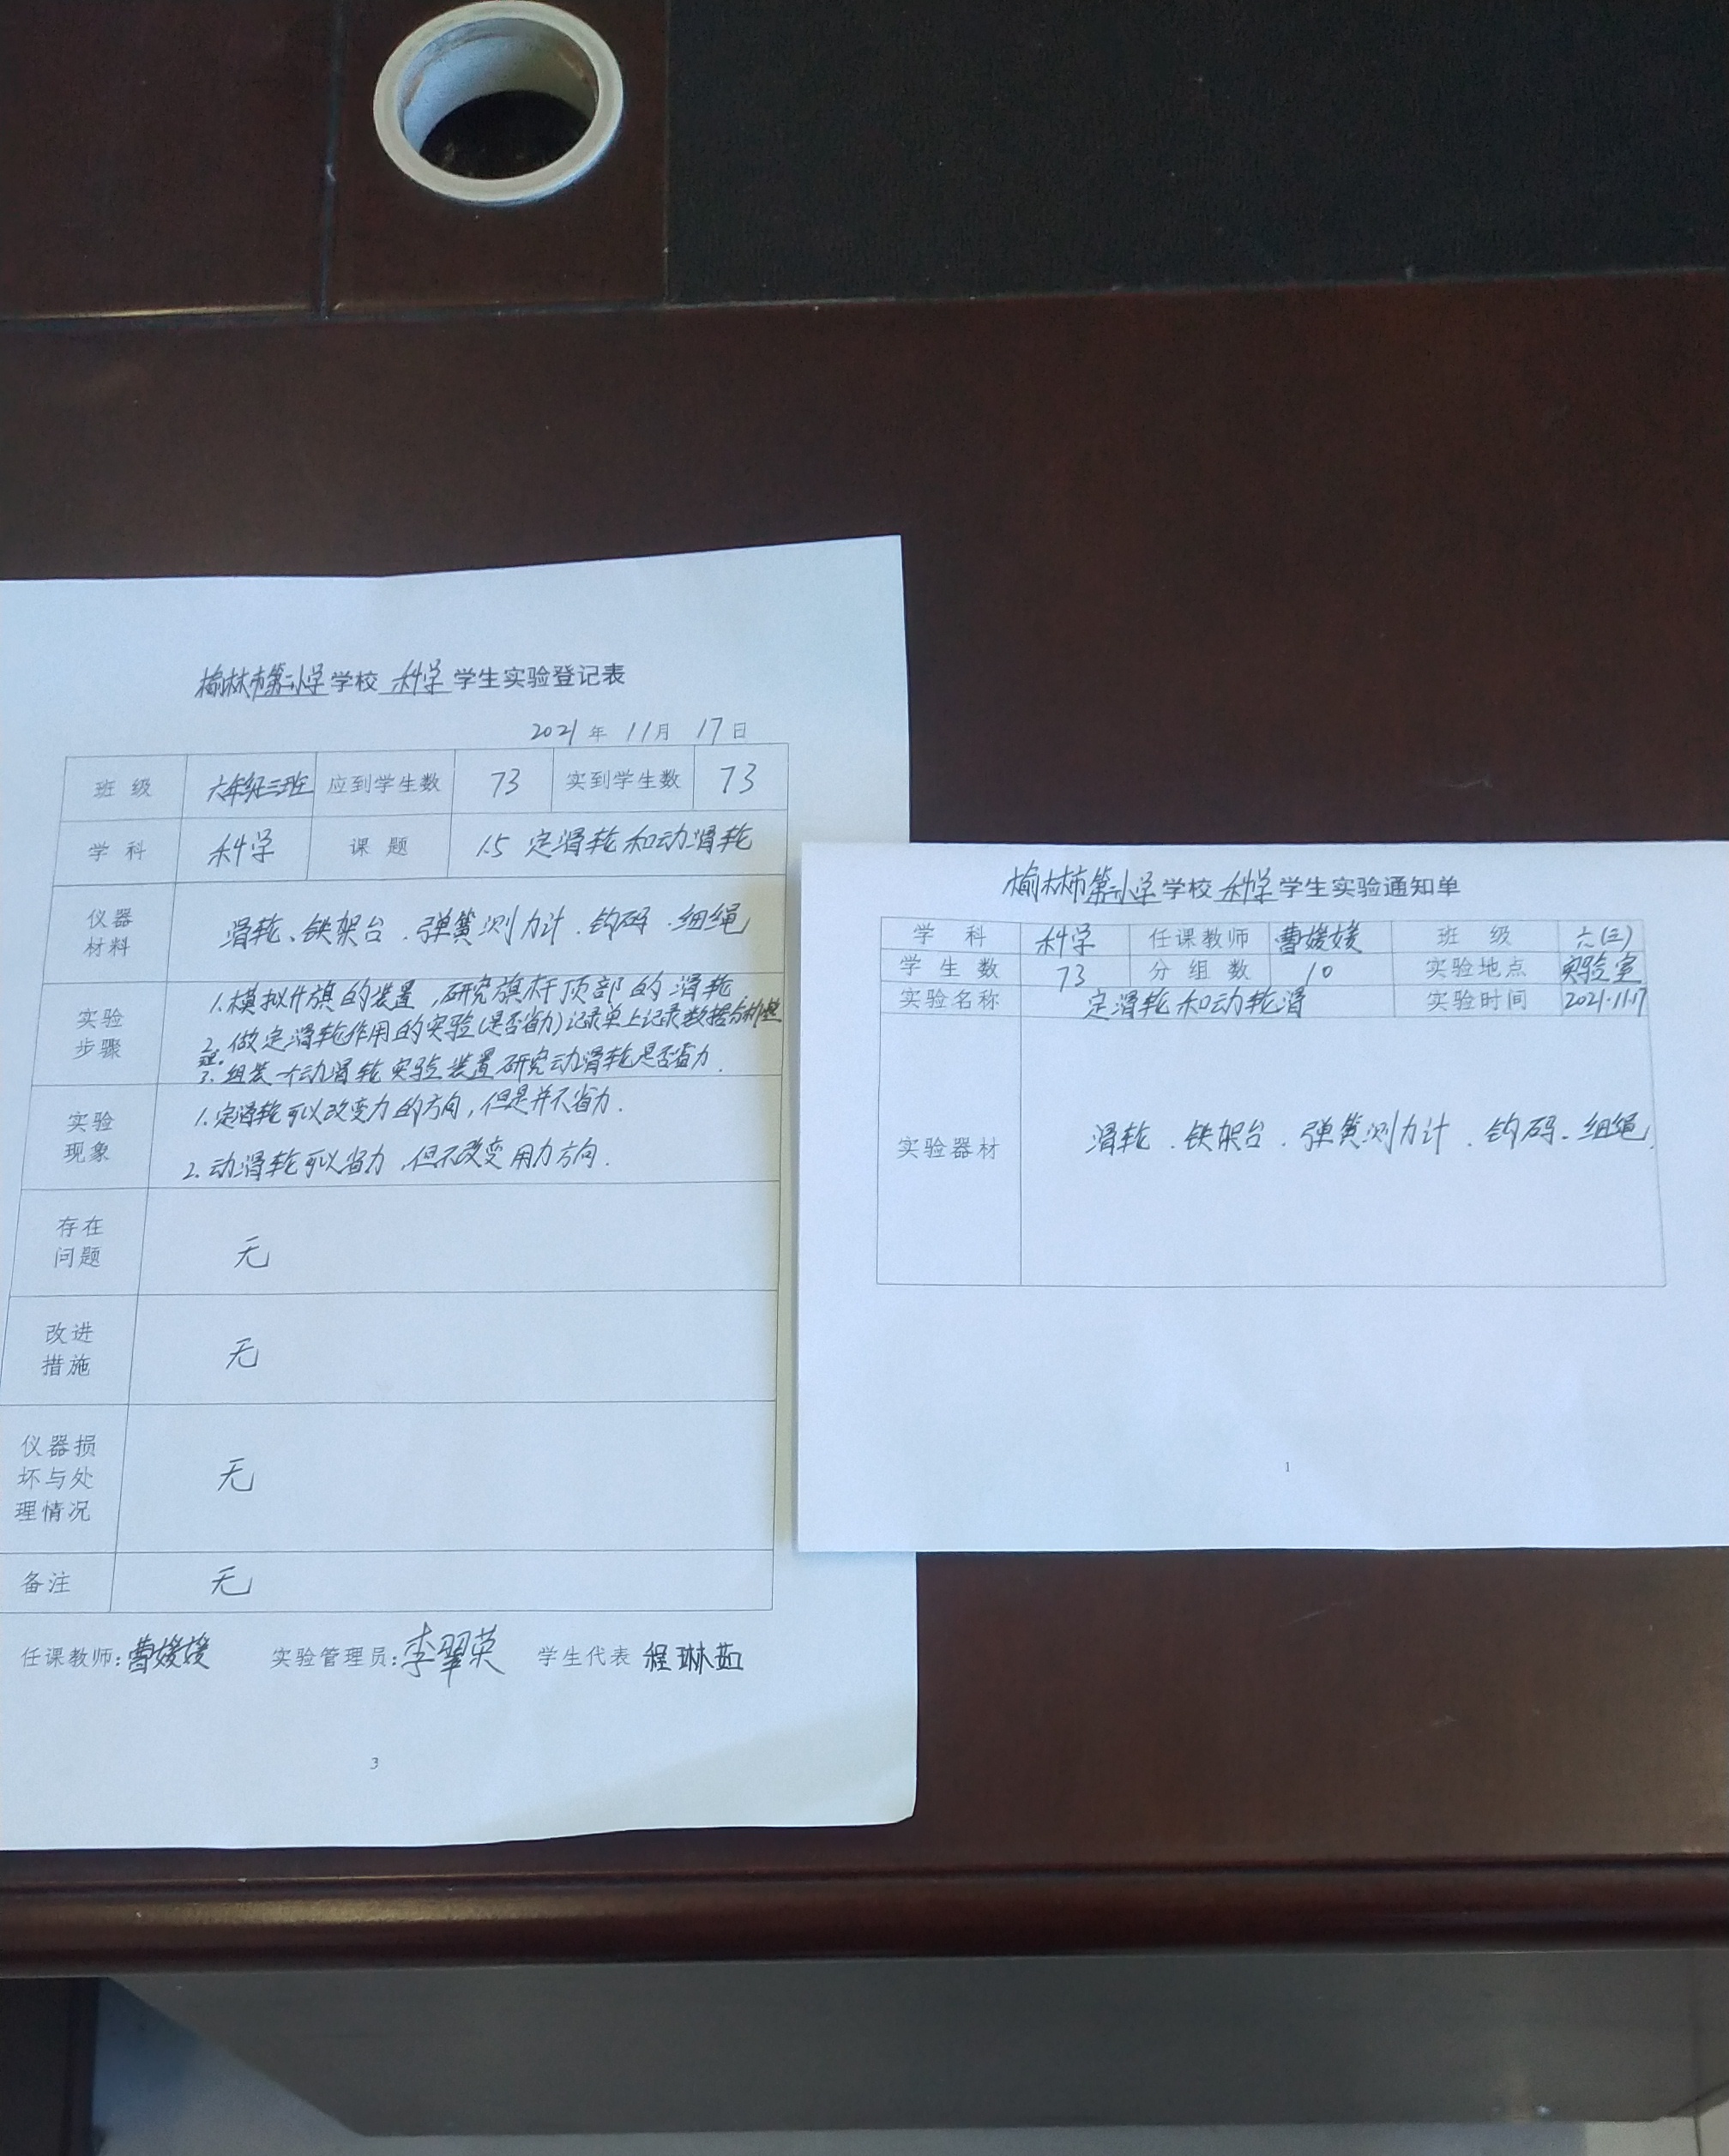 榆林市第二小学学校 科学 学生实验登记表
2021年 11月 17日
班级 六年级三班 应到学生数 73 实到学生数 73
学科 科学 课题 1.5 定滑轮和动滑轮
仪器材料 滑轮、铁架台.弹簧测力计.钩码.细绳
实验步骤 1.模拟升旗的装置,研究旗杆顶部的滑轮
2.做定滑轮作用的实验(是否省力)记录单上记录数据分析整
理.
3.组装一个动滑轮实验装置研究动滑轮是否省力.
实验现象 1.定滑轮可以改变力的方向,但是并不省力.
2.动滑轮可以省力,但不改变用力方向.
存在问题 无
改进措施 无
仪器损坏与处理情况 无
备注 无
任课教师:曹媛媛 实验管理员:李翠英 学生代表 程琳茹
3
榆林市第二小学学校 科学 学生实验通知单
学科 科学 任课教师 曹媛媛 班级 六(三)
学生数 73 分组数 10 实验地点 实验室
实验名称 定滑轮和动轮滑 实验时间 2021.11.17
实验器材 滑轮.铁架台.弹簧测力计.钩码.细绳.
1